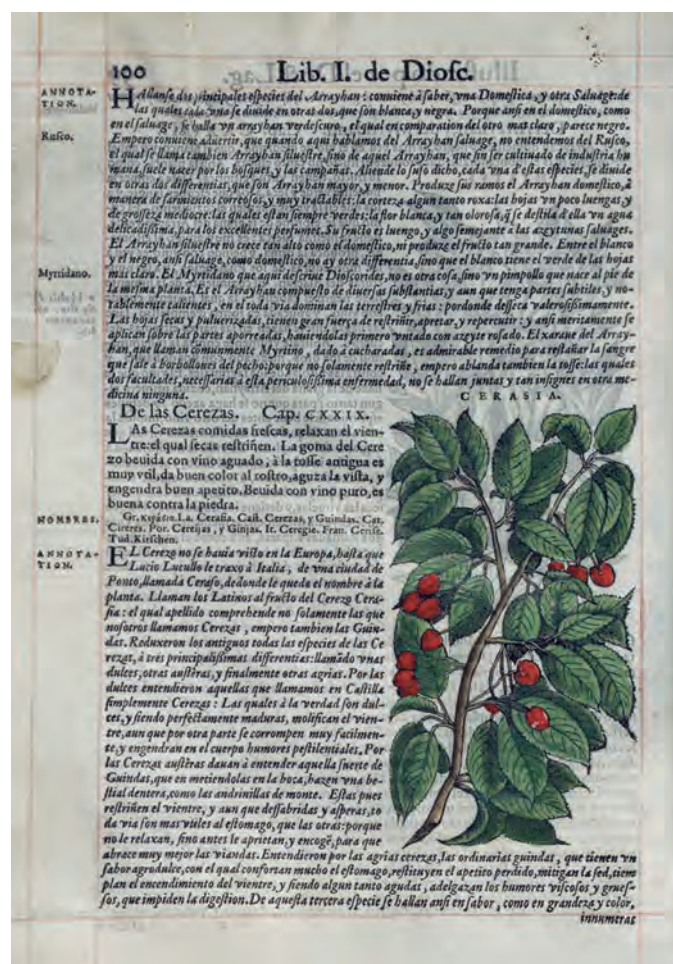 100 Lib. I. de Diosc.
ANNOTA-
TION.
HAllanse dos principales especies del Arrayhan: conuiene à saber, vna Domestica, y otra Saluage: de
las quales cada vna se diuide en otras dos, que son blanca, y negra. Porque ansi en el domestico, como
en el saluage, se halla vn arrayhan verdescuro, el qual en comparation del otro mas claro, parece negro.
Rusco.
Empero conuiene aduertir, que quando aqui hablamos del Arrayhan saluage, no entendemos del Rusco,
el qual se llama tambien Arrayhan siluestre, sino de aquel Arrayhan, que sin ser cultiuado de industria hu
mana, suele nacer por los bosques, y las campañas. Allende lo suso dicho, cada vna d'estas especies, se diuide
en otras dos differentias, que son Arrayhan mayor, y menor. Produze sus ramos el Arrayhan domestico, à
manera de sarmientos correosos, y muy tractables: la corteza algun tanto roxa: las hojas vn poco luengas, y
de grosseza mediocre: las quales estan siempre verdes: la flor blanca, y tan olorosa, q̃ se destila d'ella vn agua
delicadissima, para los excellentes perfumes. Su fructo es luengo, y algo semejante a las azeytunas saluages.
El Arrayhan siluestre no crece tan alto como el domestico, ni produze el fructo tan grande. Entre el blanco
y el negro, ansi saluage, como domestico, no ay otra differentia, sino que el blanco tiene el verde de las hojas
Myrtidano.
mas claro. El Myrtidano que aqui descriue Dioscorides, no es otra cosa, sino vn pimpollo que nace al pie de
la mesma planta. Es el Arrayhan compuesto de diuersas substantias, y aun que tenga partes subtiles, y no-
tablemente calientes, en el toda via dominan las terrestres y frias: pordonde desseca valerosissimamente.
Las hojas secas y puluerizadas, tienen gran fuerça de restriñir, apretar, y repercutir: y ansi meritamente se
aplican sobre las partes aporreadas, hauiendolas primero vntado con azeyte rosado. El xaraue del Array-
han, que llaman comunmente Myrtino, dado à cucharadas, es admirable remedio para restañar la sangre
que sale à borbollones del pecho: porque no solamente restriñe, empero ablanda tambien la tosse: las quales
dos facultades, necessarias à esta periculosissima enfermedad, no se hallan juntas y tan insignes en otra me-
dicina ninguna.
CERASIA.
De las Cerezas. Cap. CXXIX.
LAs Cerezas comidas frescas, relaxan el vien-
tre: el qual secas restriñen. La goma del Cere
zo beuida con vino aguado, à la tosse antigua es
muy vtil, da buen color al rostro, aguza la vista, y
engendra buen apetito. Beuida con vino puro, es
buena contra la piedra.
NOMBRES.
Gr. κεράσια. La. Cerasia. Cast. Cerezas, y Guindas. Cat.
Cireres. Por. Cereijas, y Ginjas. It. Ceregie. Fran. Cerise.
Tud. Kirschen.
ANNOTA-
TION.
EL Cerezo no se hauia visto en la Europa, hasta que
Lucio Lucullo le traxo à Italia, de vna ciudad de
Ponto, llamada Ceraso, de donde le quedo el nombre à la
planta. Llaman los Latinos al fructo del Cerezo Cera-
sia: el qual apellido comprehende no solamente las que
nosotros llamamos Cerezas, empero tambien las Guin-
das. Reduxeron los antiguos todas las especies de las Ce
rezas, à tres principalissimas differentias: llamãdo vnas
dulces, otras austeras, y finalmente otras agrias. Por las
dulces entendieron aquellas que llamamos en Castilla
simplemente Cerezas: Las quales à la verdad son dul-
ces, y siendo perfectamente maduras, molifican el vien-
tre, aun que por otra parte se corrompen muy facilmen-
te, y engendran en el cuerpo humores pestilentiales. Por
las Cerezas austèras dauan à entender aquella suerte de
Guindas, que en metiendolas en la boca, hazen vna be-
stial dentera, como las andrinillas de monte. Estas pues
restriñen el vientre, y aun que dessabridas y asperas, to
da via son mas vtiles al estomago, que las otras: porque
no le relaxan, sino antes le aprietan, y encogẽ, para que
abrace muy mejor las viandas. Entendieron por las agrias cerezas, las ordinarias guindas, que tienen vn
sabor agrodulce, con el qual confortan mucho el estomago, restituyen el apetito perdido, mitigan la sed, tiem
plan el encendimiento del vientre, y siendo algun tanto agudas, adelgazan los humores viscosos y grues-
sos, que impiden la digestion. De aquesta tercera especie se hallan ansi en sabor, como en grandeza y color,
innumeras